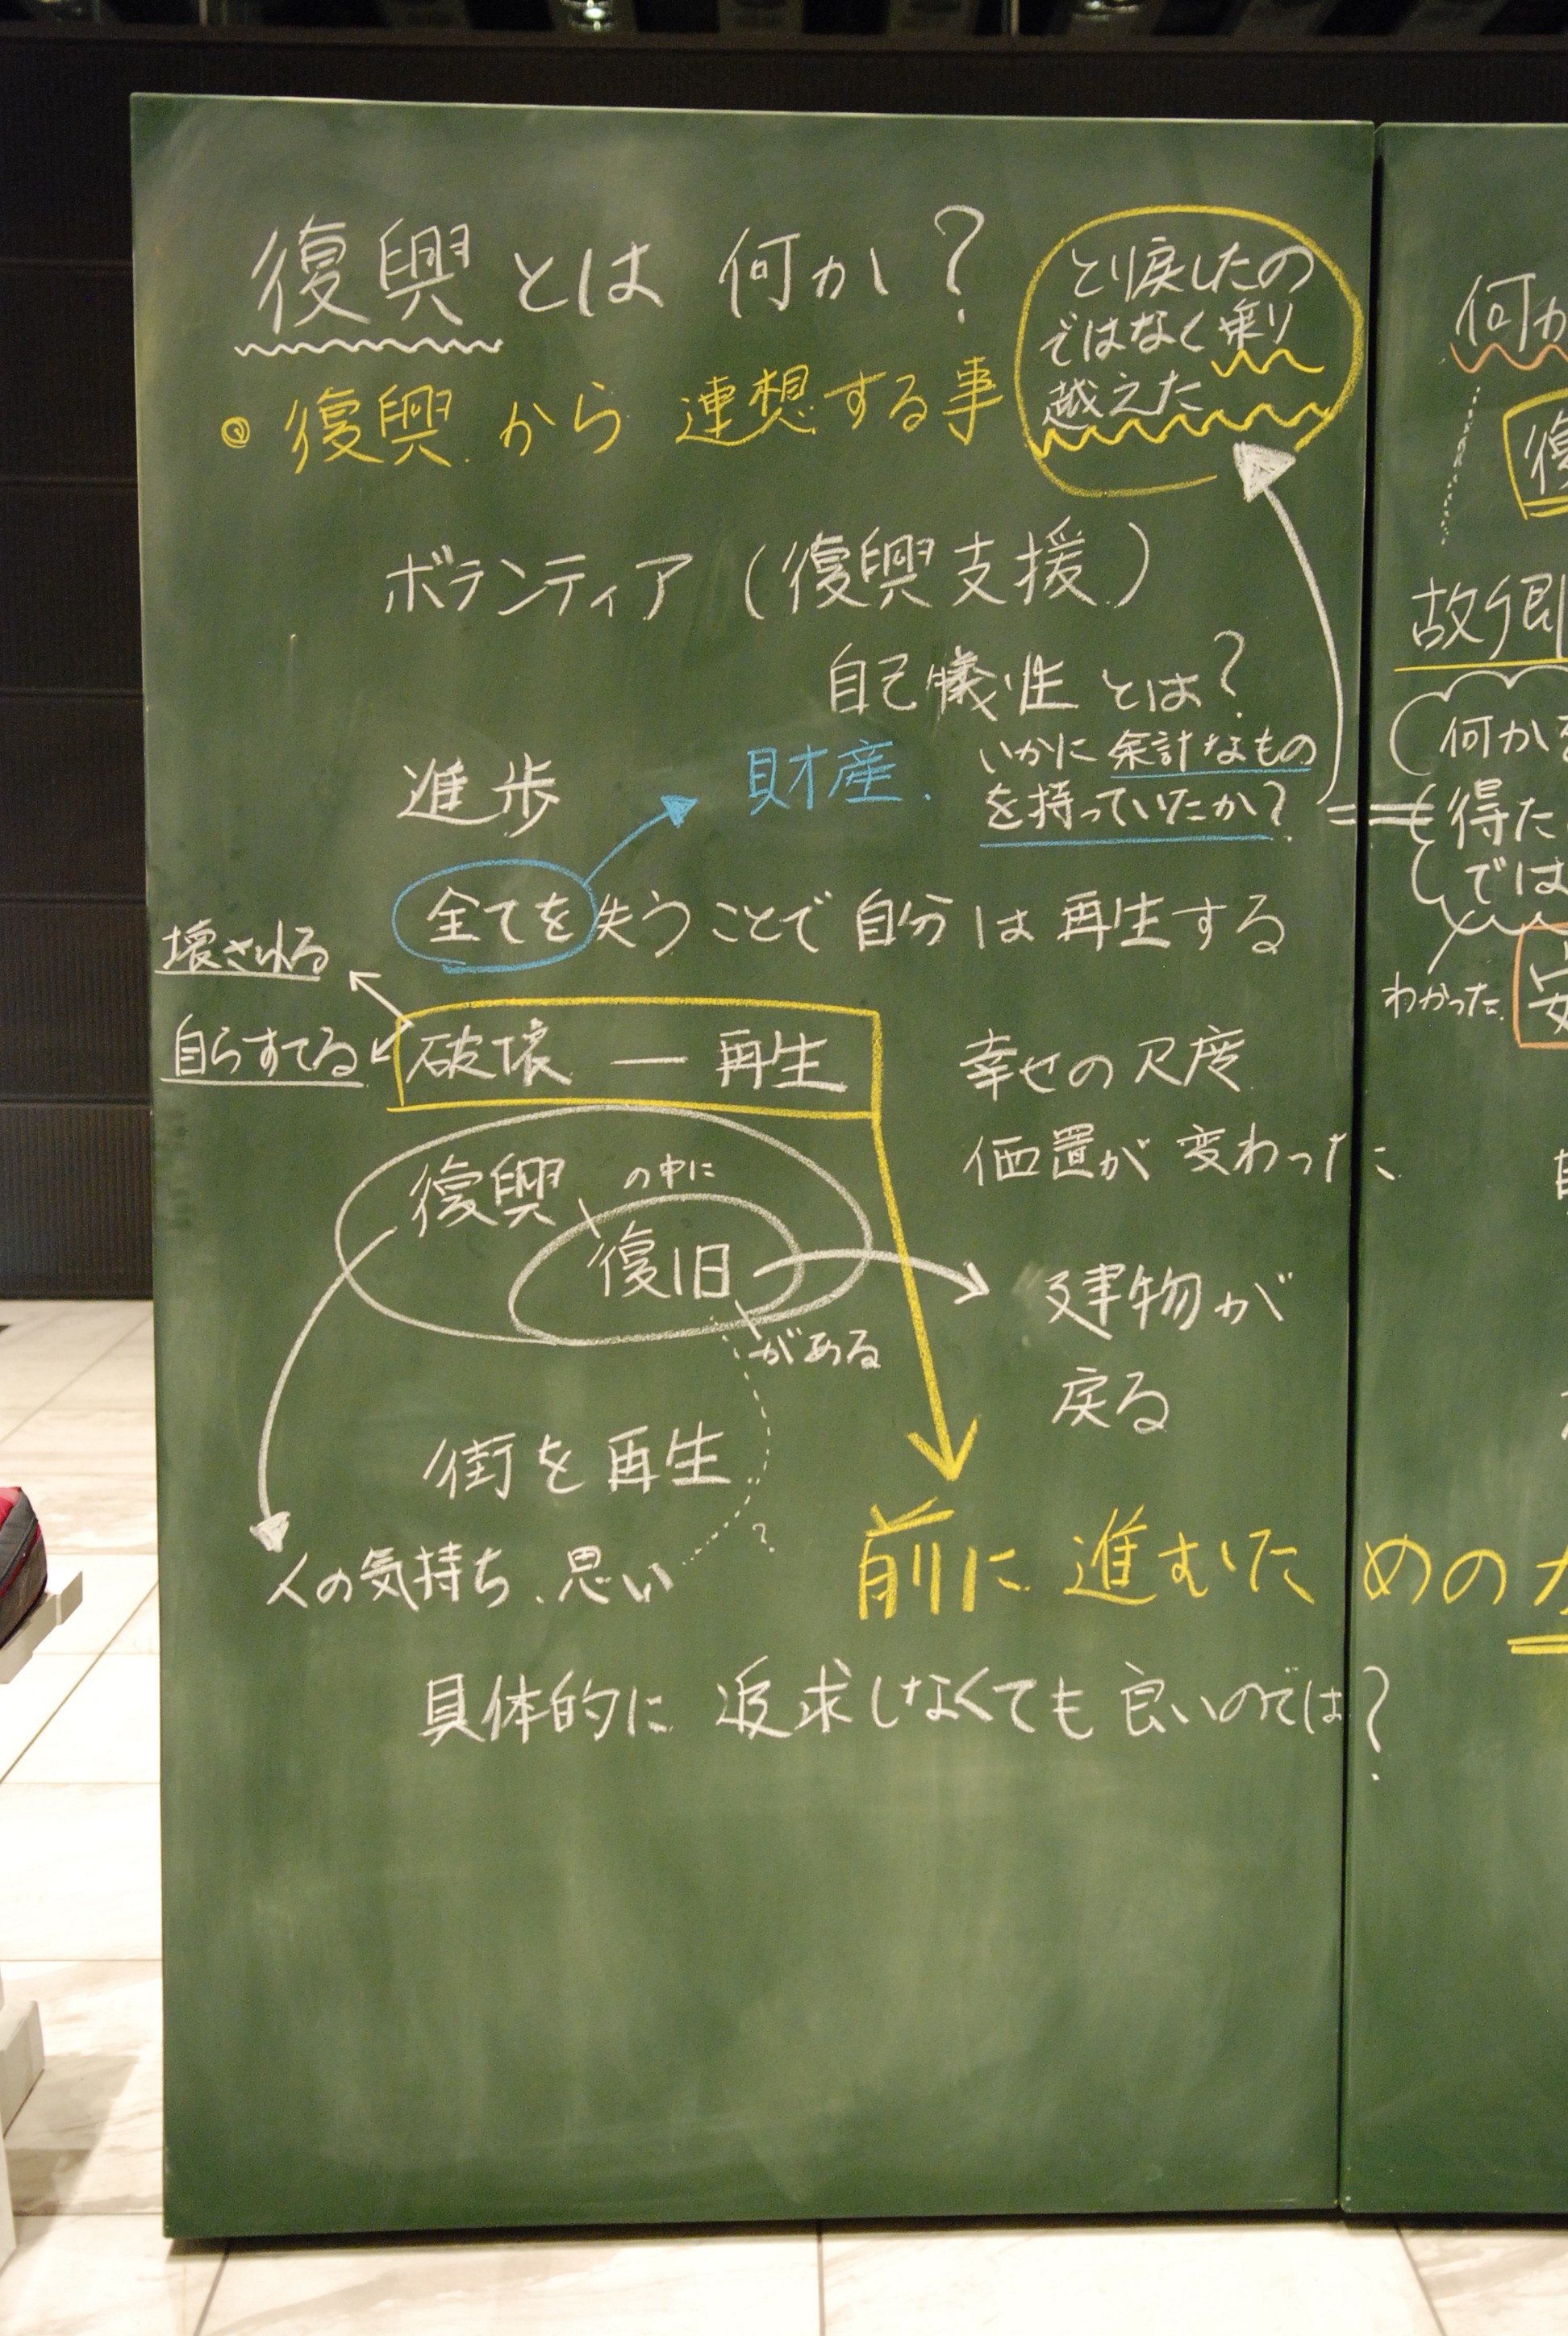 復興とは何か?
とり戻したの
ではなく乗り
越えた
◎復興から連想する事
ボランティア(復興支援)
自己犠牲とは?
いかに余計なもの
を持っていたか?
進歩
財産.
全てを失うことで自分は再生する
壊される
自らすてる
破壊 ― 再生
幸せの尺度
価置が変わった
復興の中に
復旧
がある
建物が
戻る
街を再生
人の気持ち、思い
?
前に進むための
具体的に追求しなくても良いのでは?
何か
復
故郷
何か
得た
では
わかった.
安